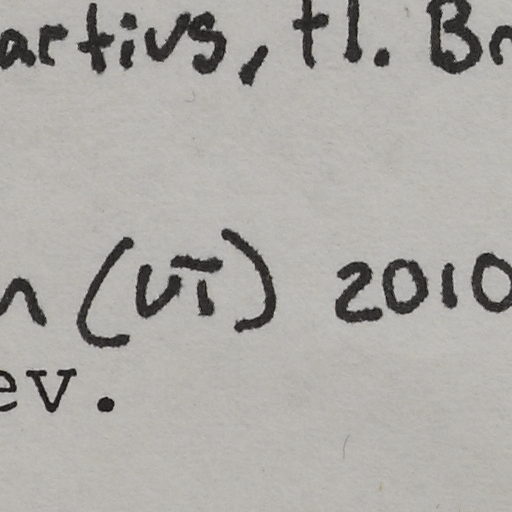 artius, fl. Br
n (VT) 2010
ev.